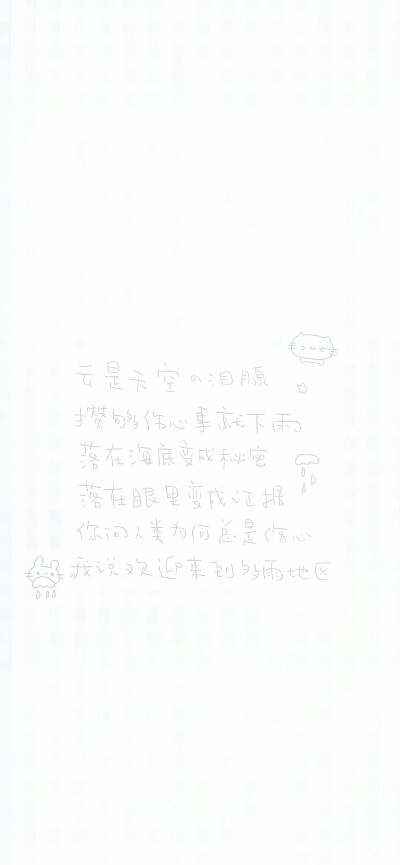 云是天空の泪腺
攒够伤心事就下雨
落在海底变成秘密
落在眼里变成证据
你问人类为何总是伤心
我说欢迎来到多雨地区